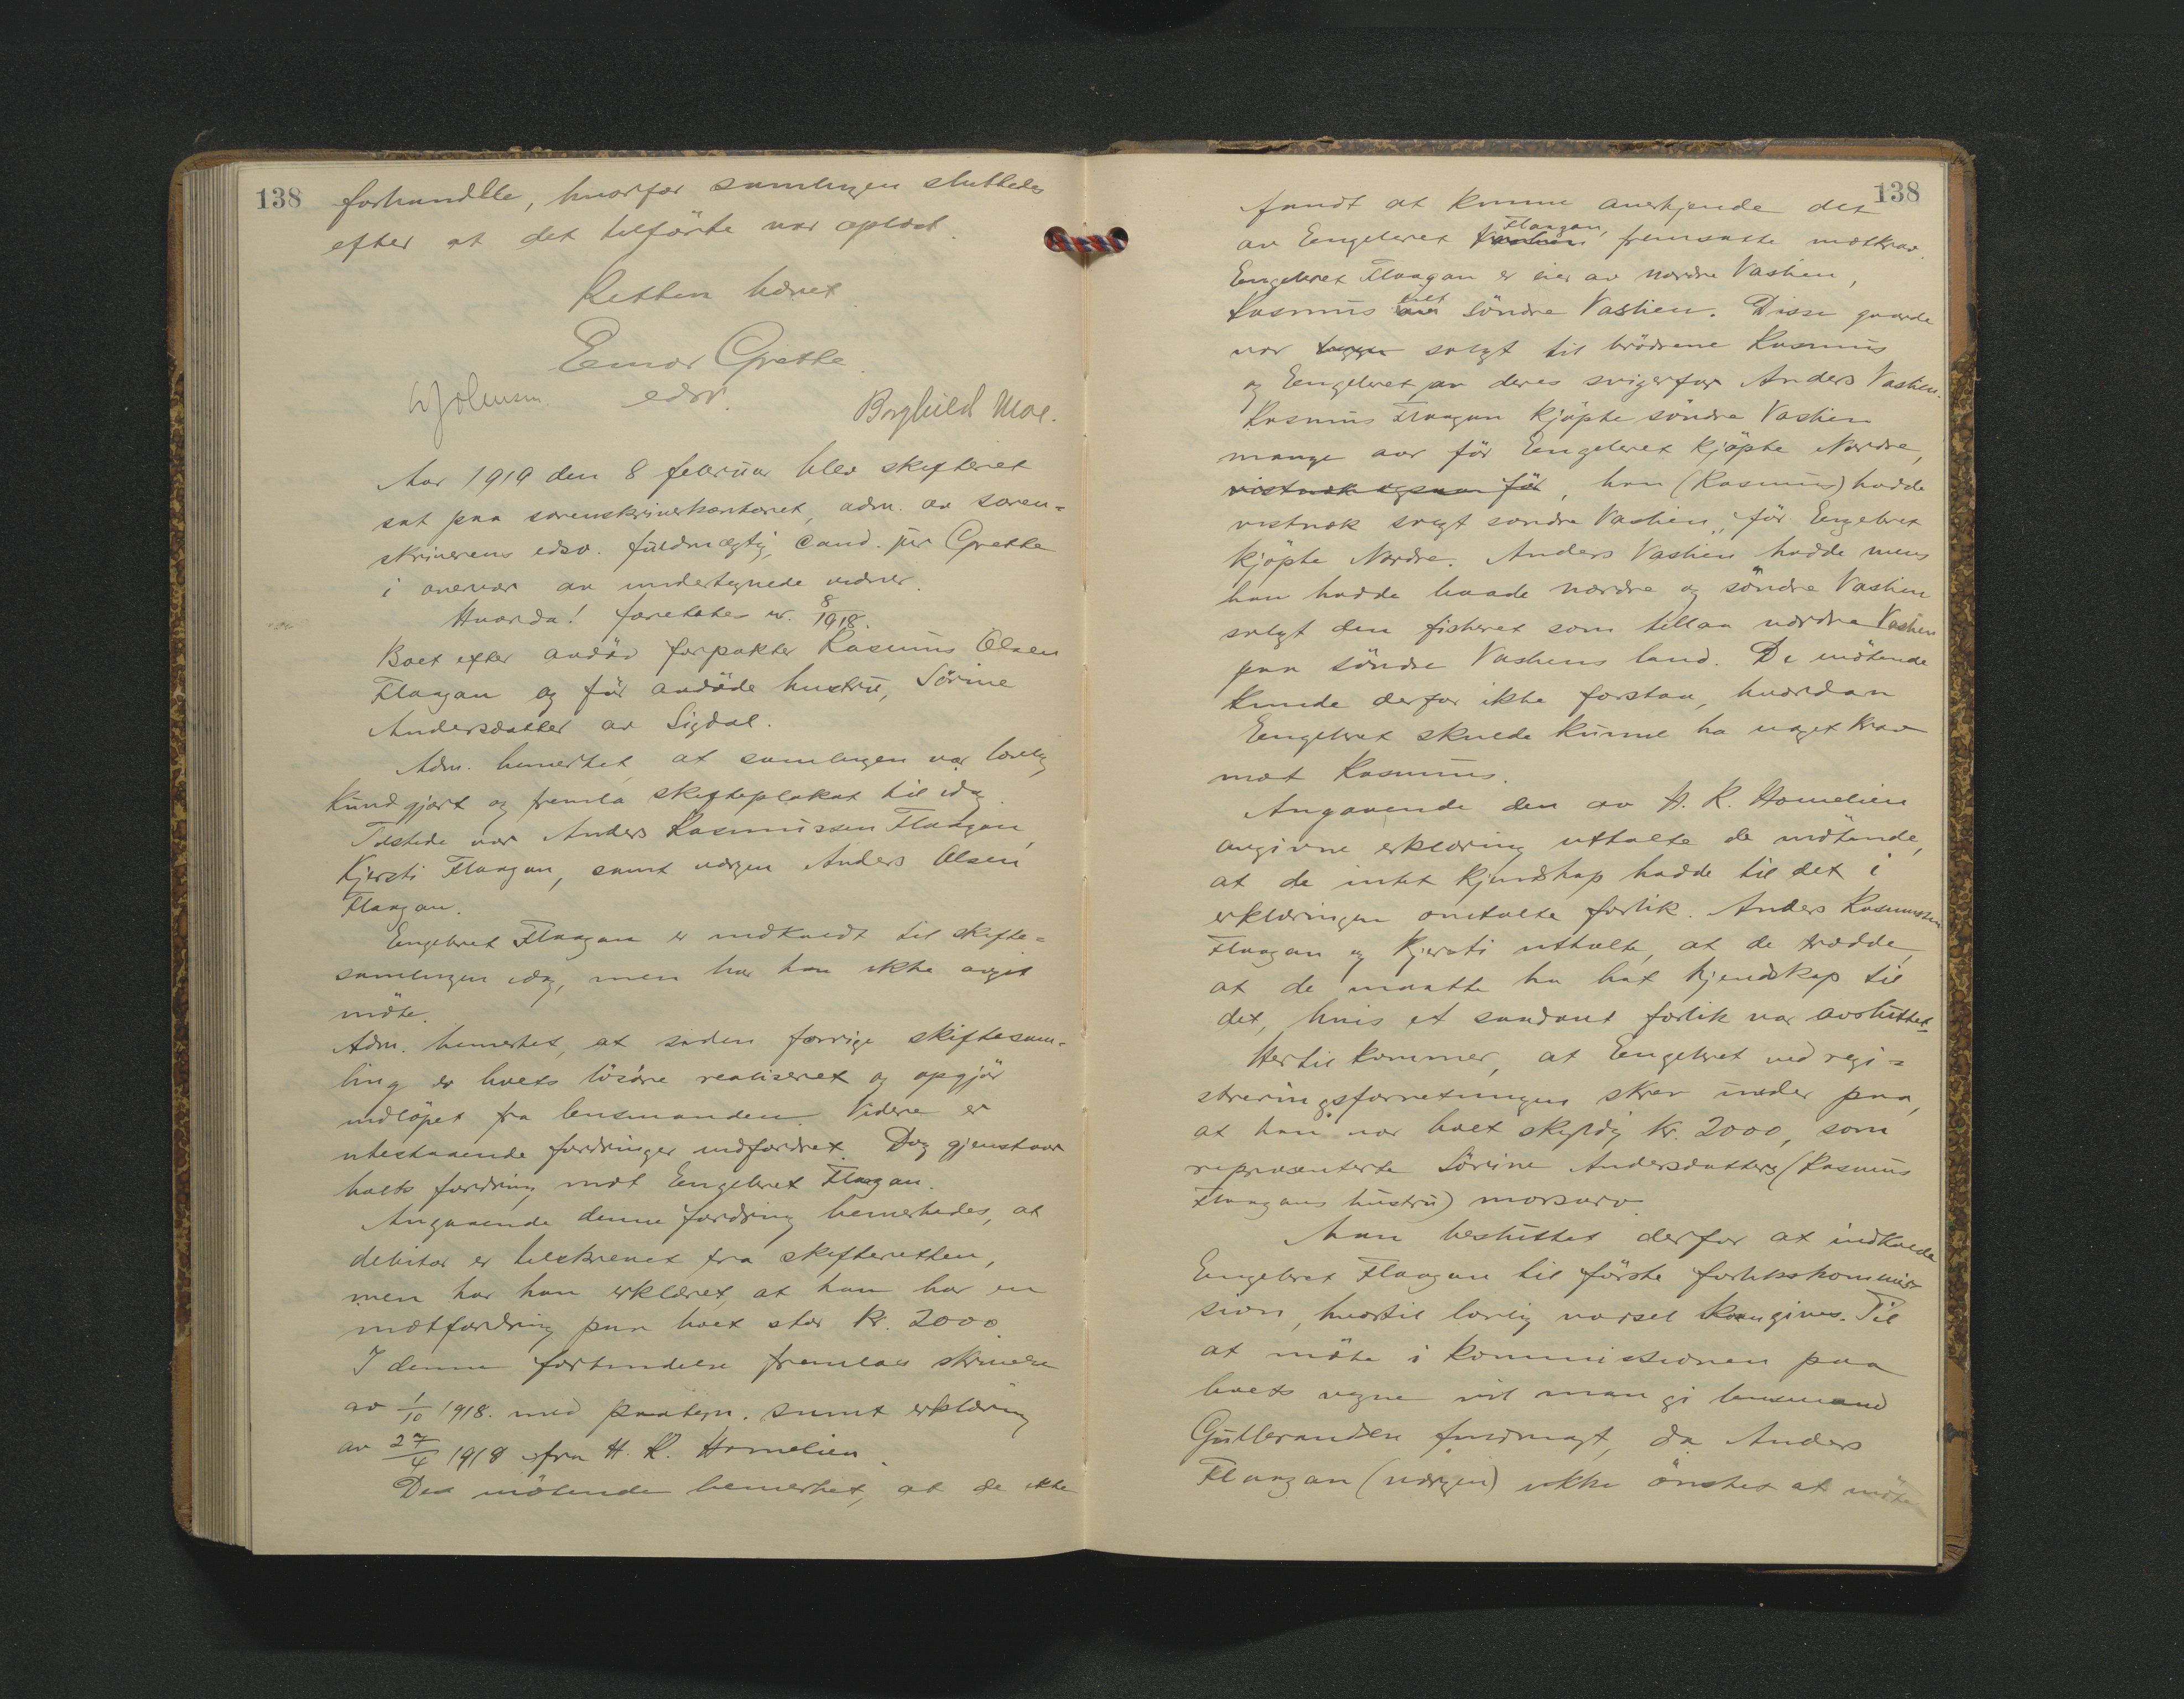 138
forhandlle, hvorfor samlingen sluttedes
efter at det tilförte var oplæst.
Retten hævet
Einar Grette
edsv.
Borghild Moe.
Aar 1919 den 8 februar blev skifteret
sat paa sorenskriverkontoret, adm. av soren-
skriverens edsv. fuldmægtig, cand. jur Grette
i overvær av undertegnede vidner.
Hvorda! foretokes nr. 8/1918.
Boet efter avdöd forpakter Rasmus Olsen
Flaagan og för avdöde hustru, Sörine
Andersdatter av Sigdal.
Adm. bemerket, at samlingen var lovlig
kundgjort og fremla skifteplakat til idag.
Tilstede var Anders Rasmussen Flaagan,
Kjersti Flaagan, samt vergen Anders Olsen
Flaagan.
Engebret Flaagan er indkaldt til skifte-
samlingen idag, men har han ikke avgit
möte.
Adm. bemerket, at siden forrige skiftesam-
ling er boets lösöre realiseret og opgjör
indlöpet fra lensmanden. Videre er
utestaaende fordringer indfordret. Dog gjenstaar
boets fordring mot Engebret Flaagan.
Angaaende denne fordring bemerkedes, at
debitor er tilskrevet fra skifteretten,
men har han erklæret, at han har en
motfordring paa boet stor kr. 2000.
I denne forbindelse fremlaes skrivelse
av 1/10 1918. med paategn. samt erklæring
av 27/4 1918 fra H. K. Homelien.
De mötende bemerket, at de ikke
138
fandt at kunne anerkjende det
av Engebret Flaagan, fremsatte motkrav.
Engebret Flaagan er eier av nordre Vaslien,
Rasmus eiet söndre Vaslien. Disse gaarde
var solgt til brödrene Rasmus
og Engebret av deres svigerfar Anders Vaslien.
Rasmus Flaagan kjöpte söndre Vaslien
mange aar för Engebret kjöpte Nordre,
vistnok ogsaa för, han (Rasmus) hadde
vistnok solgt söndre Vaslien, för Engebret
kjöpte Nordre. Anders Vaslien hadde mens
han hadde baade nordre og söndre Vaslien
solgt den fisheret som tillaa nordre Vaslien
paa söndre Vasliens land. De mötende
kunde derfor ikke forstaa, hvordan
Engebret skulde kunne ha noget krav
mot Rasmus.
Angaaende den av H. K. Homelien
avgivne erklæring uttalte de mötende,
at de intet kjendskap hadde til det i
erklæringen omtalte forlik. Anders Rasmussen
Flaagan og Kjersti uttalte, at de trodde,
at de maatte ha hat kjendskap til
det, hvis et saadant forlik var avsluttet.
Hertil kommer, at Engebret ved regi-
streringsforretningen skrev under paa,
at han var boet skyldig kr. 2000, som
repræsenterte Sörine Andersdatters (Rasmus
Flaagans hustru) morsarv.
Man besluttet derfor at indkalde
Engebret Flaagan til förste forlikskommis-
sion, hvortil lovlig varsel kan gives. Til
at möte i kommissionen paa
boets vegne vil man gi lensmand
Gulbrandsen fuldmagt, da Anders
Flaagan (vergen) ikke önsket at möte